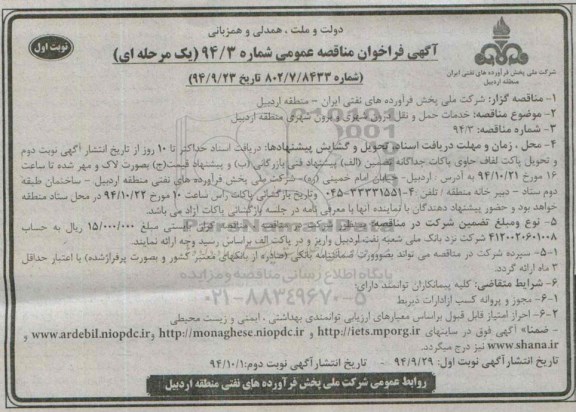 دولت و ملت ، همدلی و همزبانی
نوبت اول
آگهی فراخوان مناقصه عمومی شماره ۹۴/۳ (یک مرحله ای)
(شماره ۸۰۲/۷/۸۴۳۳ تاریخ ۹۴/۹/۲۳)
شرکت ملی پخش فرآورده های نفتی ایران
منطقه اردبیل
۱- مناقصه گزار: شرکت ملی پخش فرآورده های نفتی ایران - منطقه اردبیل
۲- موضوع مناقصه: خدمات حمل و نقل درون شهری و برون شهری منطقه اردبیل
۳- شماره مناقصه: ۹۴/۳
۴- محل ، زمان و مهلت دریافت اسناد، تحویل و گشایش پیشنهادها: دریافت اسناد حداکثر تا ۱۰ روز از تاریخ انتشار آگهی نوبت دوم
و تحویل پاکت لفاف حاوی پاکات جداگانه تضمین (الف) پیشنهاد فنی بازرگانی (ب) و پیشنهاد قیمت(ج) بصورت لاک و مهر شده تا ساعت
۱۶ مورخ ۹۴/۱۰/۲۱ به آدرس : اردبیل- خیابان امام خمینی (ره)- شرکت ملی پخش فرآورده های نفتی منطقه اردبیل - ساختمان طبقه
دوم ستاد - دبیر خانه منطقه / تلفن: ۴-۳۳۳۳۱۵۵۱-۰۴۵ وتاریخ بازگشائی پاکات رأس ساعت ۱۰ مورخ ۹۴/۱۰/۲۲ در محل ستاد منطقه
خواهد بود و حضور پیشنهاد دهندگان یا نماینده آنها با معرفی نامه در جلسه بازگشائی پاکات آزاد می باشد.
۵- نوع ومبلغ تضمین شرکت در مناقصه: بایستی مبلغ ۱۵/۰۰۰/۰۰۰ ریال به حساب
۴۱۲۰۰۲۰۶۰۱۰۸ شرکت نزد بانک ملی شعبه نفت اردبیل واریز و در پاکت الف براساس رسید وجه ارائه نمایند.
۵-۱- سپرده شرکت در مناقصه می تواند بصورت ضمانتنامه بانکی (صادره از بانکهای معتبر کشور و بصورت پرفراژشده) با اعتبار حداقل
۳ ماه ارائه گردد.
۶- شرایط متقاضی: کلیه پیمانکاران توانمند دارای:
۶-۱- مجوز و پروانه کسب ازادارات ذیربط
۶-۲- احراز امتیاز قابل قبول براساس معیارهای ارزیابی توانمندی بهداشتی ، ایمنی و زیست محیطی
- ضمناً آگهی فوق در سایتهای http://iets.mporg.ir و http://monaghese.niopdc.ir و www.ardebil.niopdc.ir و
www.shana.ir نیز درج میگردد.
تاریخ انتشار آگهی نوبت اول: ۹۴/۹/۲۹ - تاریخ انتشار آگهی نوبت دوم: ۹۴/۱۰/۱
روابط عمومی شرکت ملی پخش فرآورده های نفتی منطقه اردبیل
ParsNamadData
پایگاه اطلاع رسانی مناقصه و مزایده
۰۲۱-۸۸۳۴۹۶۷۰-۵